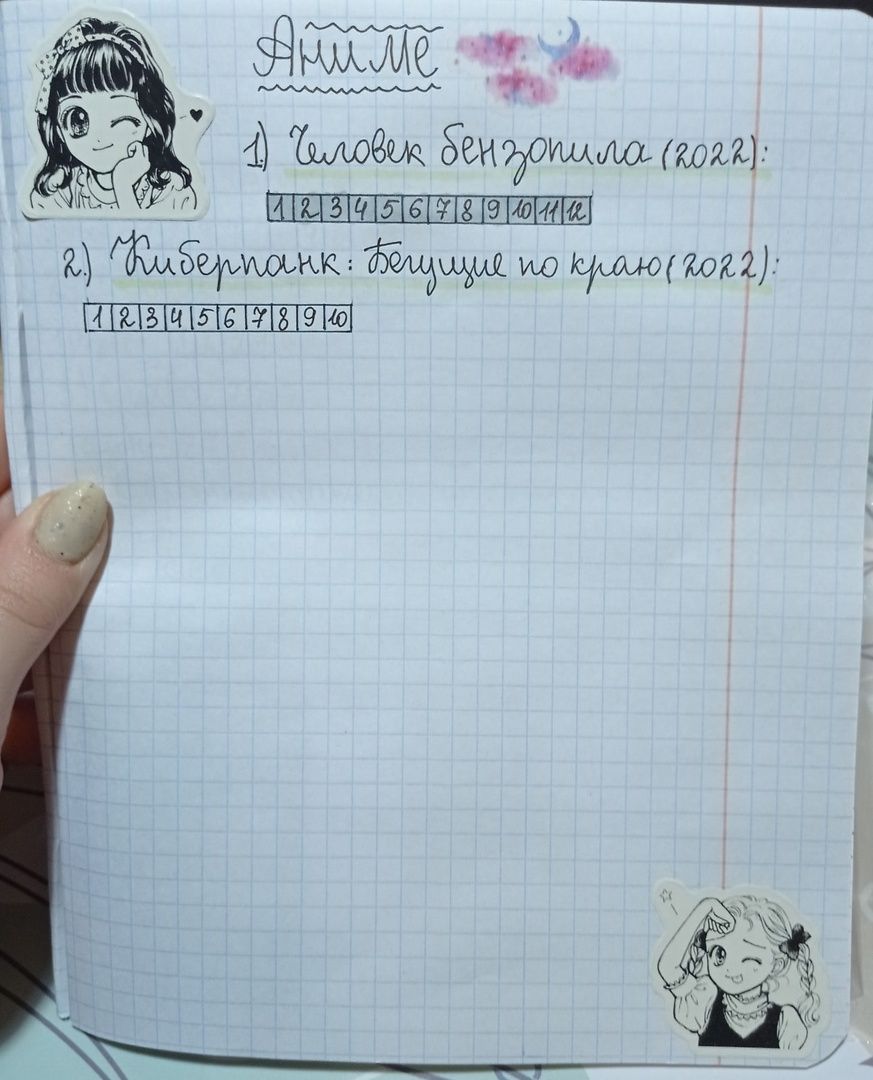 Аниме
1.) Человек бензопила (2022):
1 2 3 4 5 6 7 8 9 10 11 12
2.) Киберпанк: Бегущие по краю (2022):
1 2 3 4 5 6 7 8 9 10